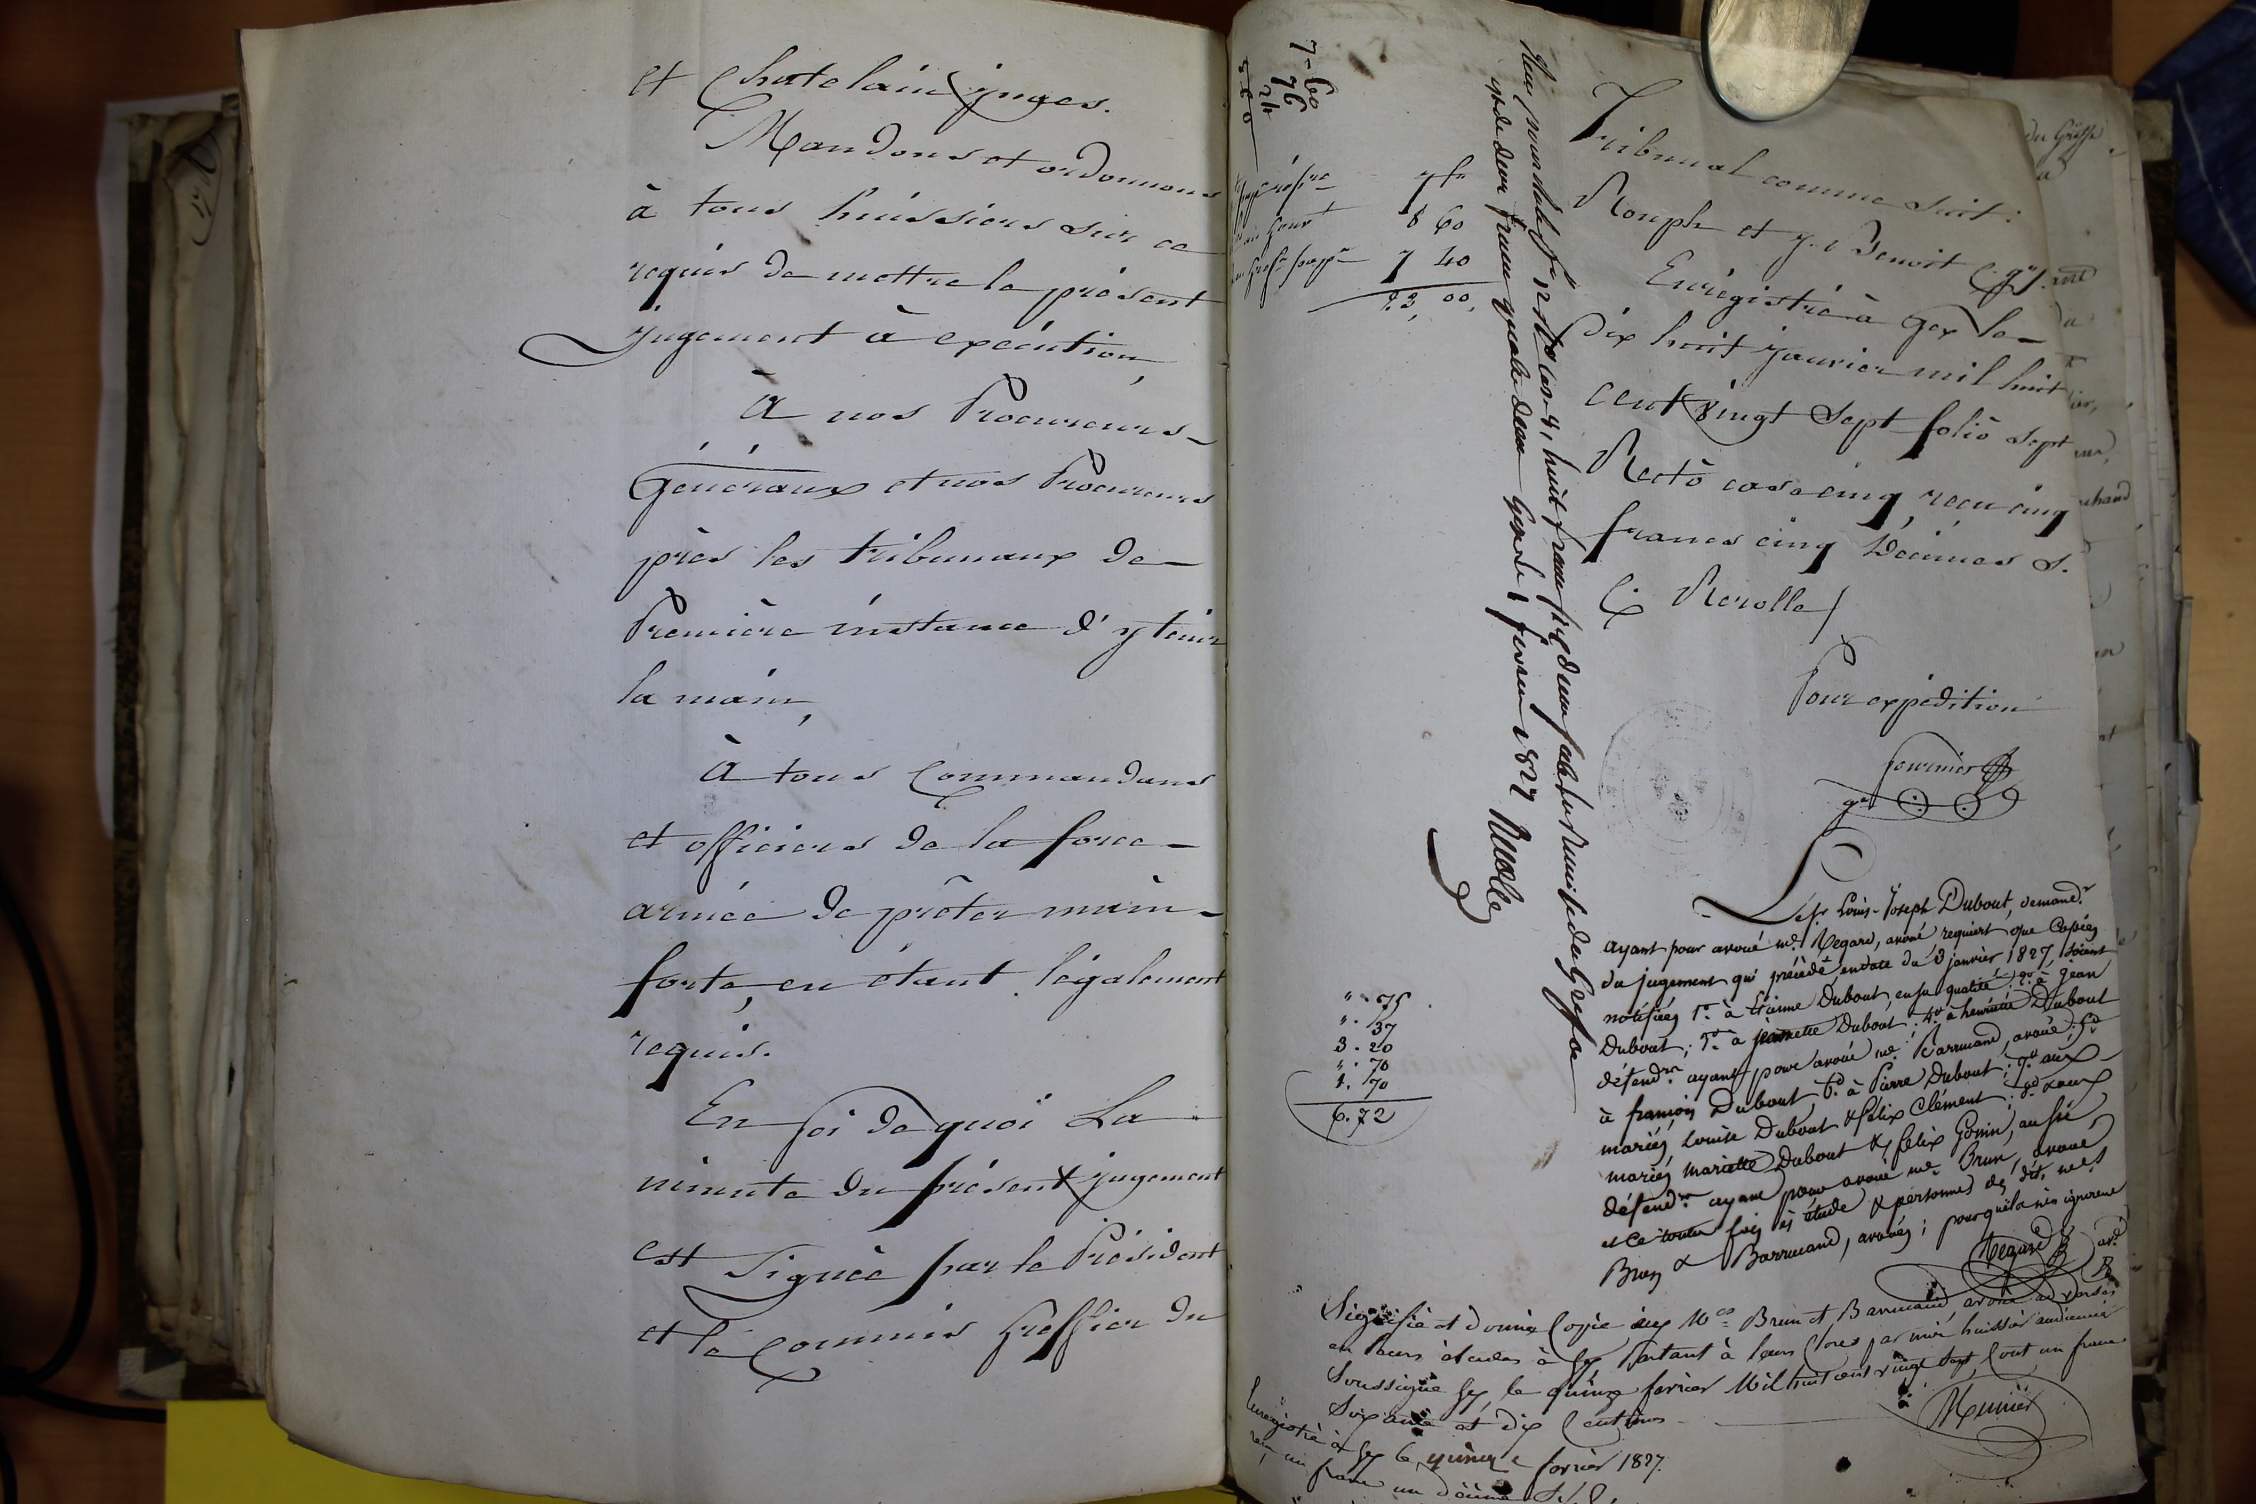 et Chatelain juges.
Mandons et ordonnons
à tous huissiers sur ce
requis de mettre le présent
jugement à exécution,
À nos Procureurs-
Généraux et nos Procureurs
près les tribunaux de
Première instance d'y tenir
la main,
À tous Commandans
et officiers de la force
armée de prêter main-
forte, en étant légalement
requis.
En foi de quoi La
minute du présent jugement
est Signée par le Président
et le Commis Greffier du
7-60
76
24
7 fr
8 60
7 40
23,00,
huit francs
deux francs quatre
Gex le 1 fevrier 1827 Rerolle
Tribunal comme suit:
Rouph et J. Benoit C. gr.
Enrégistré à Gex le
dix huit janvier mil huit
cent vingt Sept folio Sept
Recto case cinq, recu cinq
francs cinq Décimes S.
Rerolle /
Pour expédition
fournier
gr
Le Sr Louis-Joseph Dubout, demandr.
ayant pour avoué me. Regard, avoué requiert que Copies
du jugement qui précède en date du 3 janvier 1827, soient
notifiées 1o. à Etienne Dubout, en sa qualité; 2o. à Jean
Dubout; 3o. à jeannette Dubout; 4o. à henriette Dubout
défendrs. ayant pour avoué me. Barruand, avoué; 5o.
à françois Dubout 6o. à Pierre Dubout; 7o. aux
mariés Louise Dubout & félix Clément; 8o. & aux
mariés mariette Dubout & félix Gonin, aussi
défendrs. ayant pour avoué me. Brun, avoué,
et ce toutes fois ès étude & personnes des dits mes
Brun & Barruand, avoués; pour qu'ils n'en ignorent
Regard avé
" . 75
" . 37
3 . 20
" . 70
1 . 70
6 . 72
Signifié et donné Copie aux Mes. Brun et Barruand, avoués
en leurs études à Gex Parlant à leurs Clercs par moi huissier audiencier
Soussigné Gex, le quinze fevrier Mil huit cent vingt Sept, Cout un franc
Soixante et dix Centimes
Munier
Enregistré à Gex le quinze fevrier 1827.
reçu un franc un décime